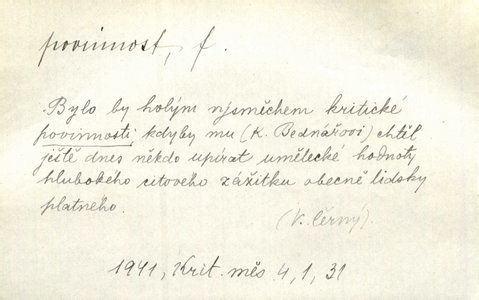 povinnost, f.
Bylo by holým výsměchem kritické
povinnosti kdyby mu (K. Bednářovi) chtěl
ještě dnes někdo upírat umělecké hodnoty
hlubokého citového zážitku obecně lidsky
platného.
(V. Černý).
1941, Krit. měs. 4, 1, 31